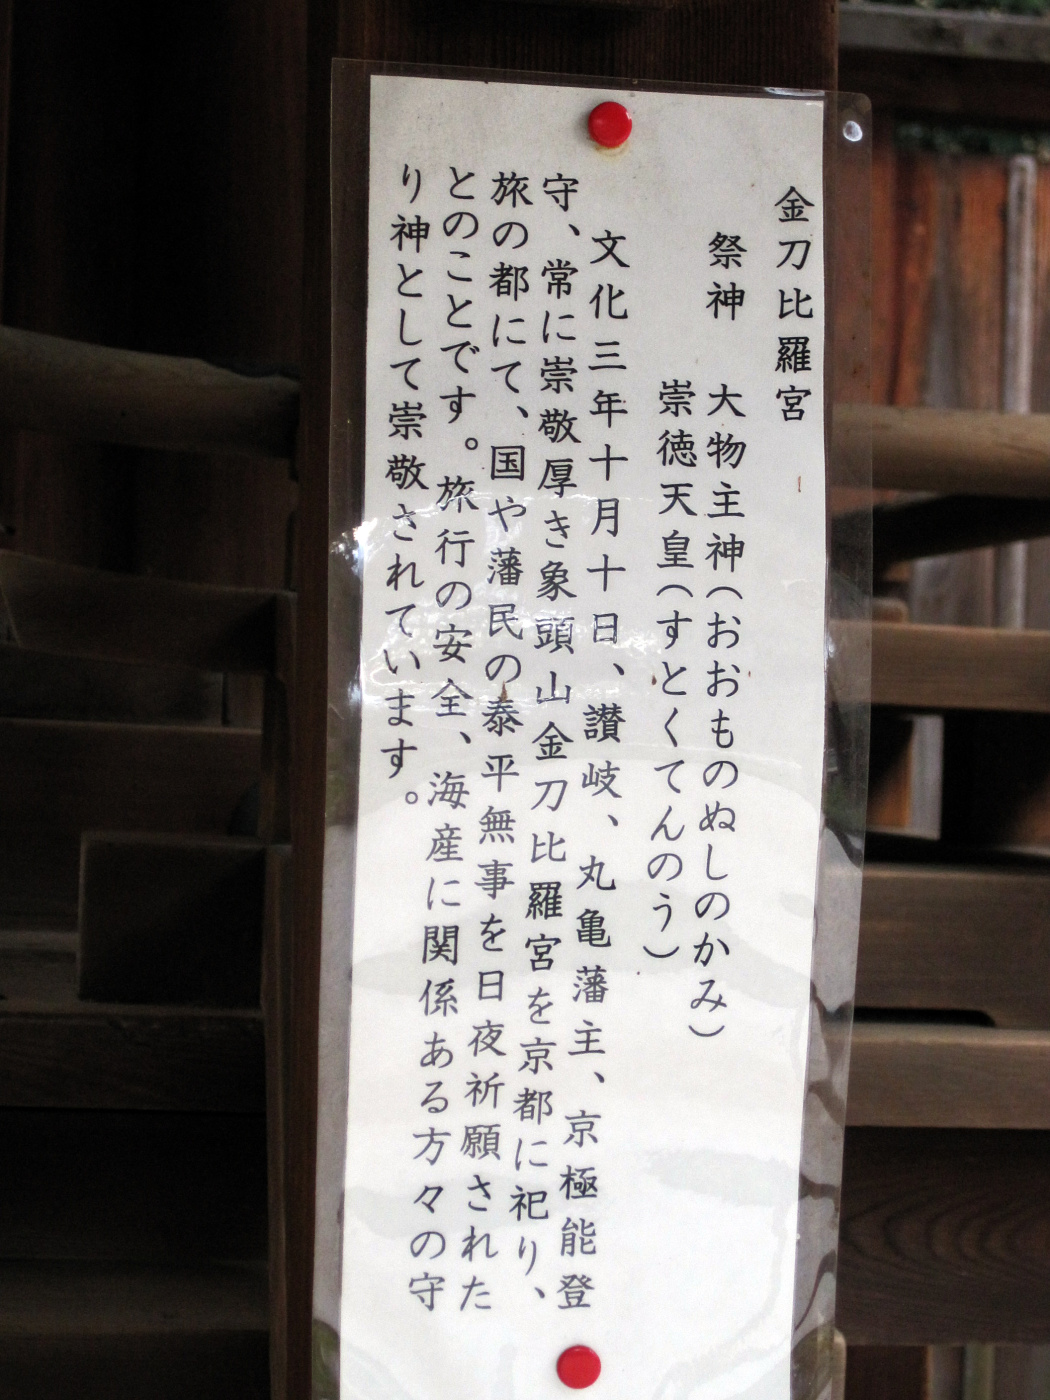 金刀比羅宮
祭神　大物主神（おおものぬしのかみ）
崇徳天皇（すとくてんのう）
文化三年十月十日、讃岐、丸亀藩主、京極能登
守、常に崇敬厚き象頭山金刀比羅宮を京都に祀り、
旅の都にて、国や藩民の泰平無事を日夜祈願された
とのことです。旅行の安全、海産に関係ある方々の守
り神として崇敬されています。